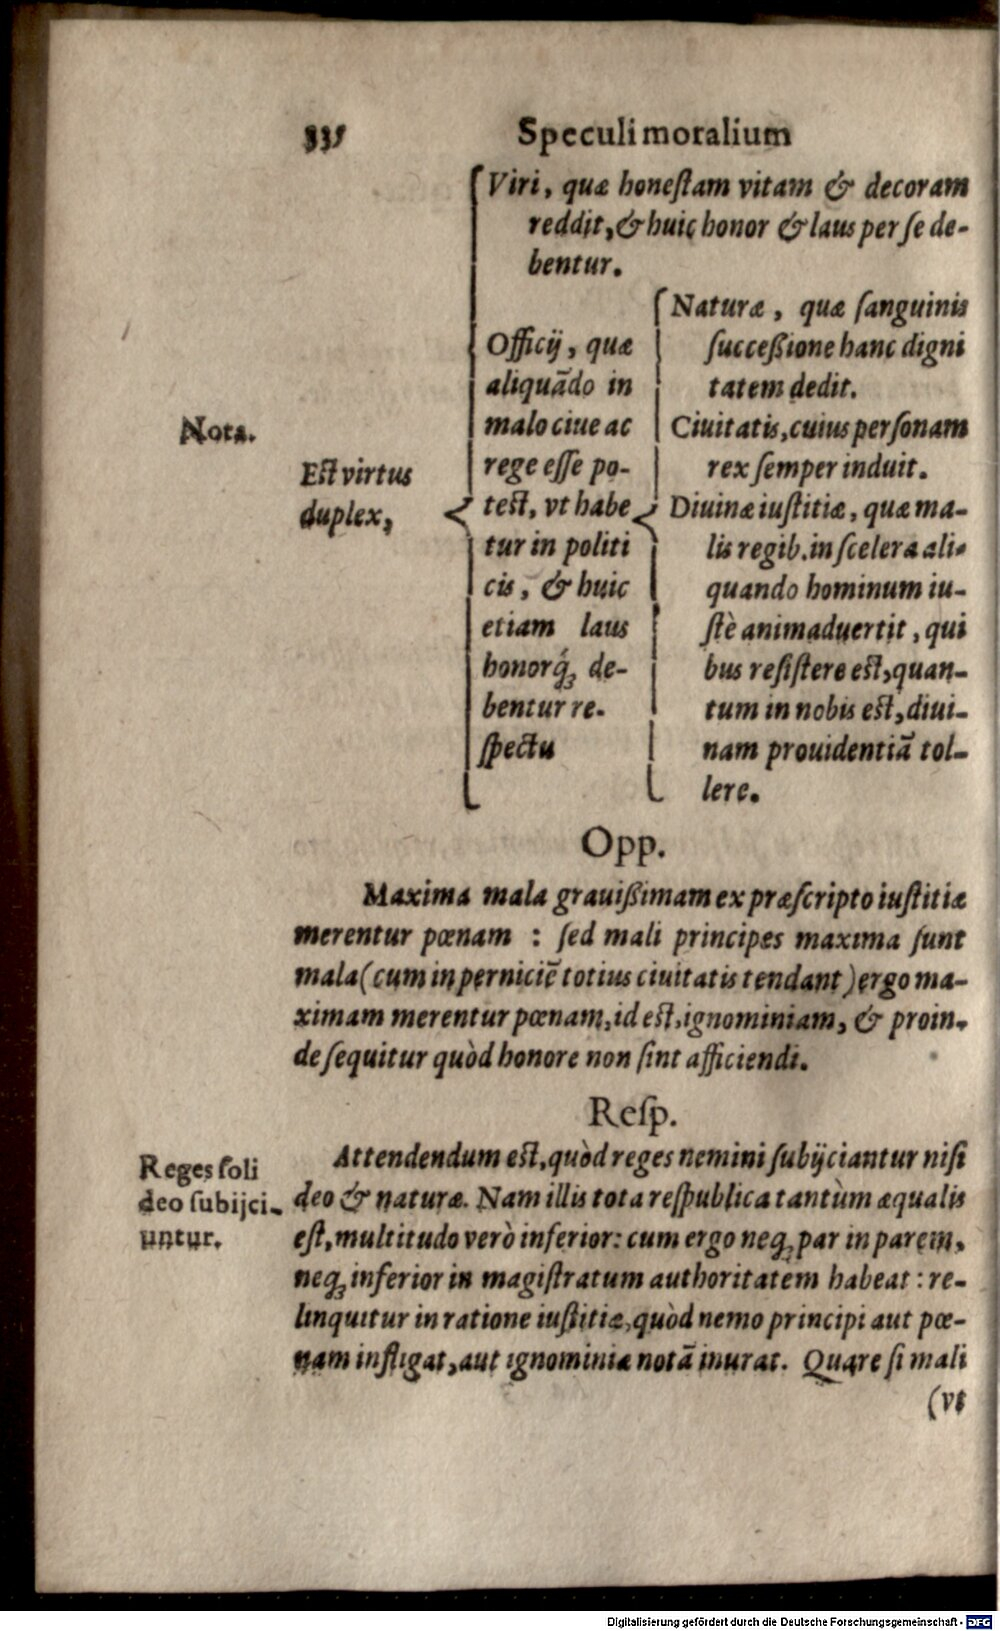 Speculi moralium
Viri, quæ honeſtam vitam & decoram
reddit, & huic honor & laus per ſe de-
bentur.
Nota.
Eſt virtus
duplex,
Officij, quæ
aliquãdo in
malo ciue ac
rege eſſe po-
teſt, vt habe
tur in politi
cis, & huic
etiam laus
honorq́ꝫ de-
bentur re-
ſpectu
Naturæ, quæ ſanguinis
ſucceßione hanc digni
tatem dedit.
Ciuitatis, cuius perſonam
rex ſemper induit.
Diuinæ iuſtitiæ, quæ ma-
lis regib. in ſcelera ali-
quando hominum iu-
ſtè animaduertit, qui
bus reſiſtere eſt, quan-
tum in nobis eſt, diui-
nam prouidentiã tol-
lere.
Opp.
Maxima mala grauißimam ex præſcripto iuſtitiæ
merentur pœnam : ſed mali principes maxima ſunt
mala (cum in perniciẽ totius ciuitatis tendant) ergo ma-
ximam merentur pœnam, id eſt, ignominiam, & proin-
de ſequitur quòd honore non ſint afficiendi.
Reſp.
Reges ſoli
deo ſubijci-
untur.
Attendendum eſt, quòd reges nemini ſubijciantur niſi
deo & naturæ. Nam illis tota reſpublica tantùm æqualis
eſt, multitudo verò inferior: cum ergo neqꝫ par in parem,
neqꝫ inferior in magiſtratum authoritatem habeat : re-
linquitur in ratione iuſtitiæ, quòd nemo principi aut pœ-
nam infligat, aut ignominiæ notã inurat. Quare ſi mali
(vt
Digitalisierung gefördert durch die Deutsche Forschungsgemeinschaft - DFG